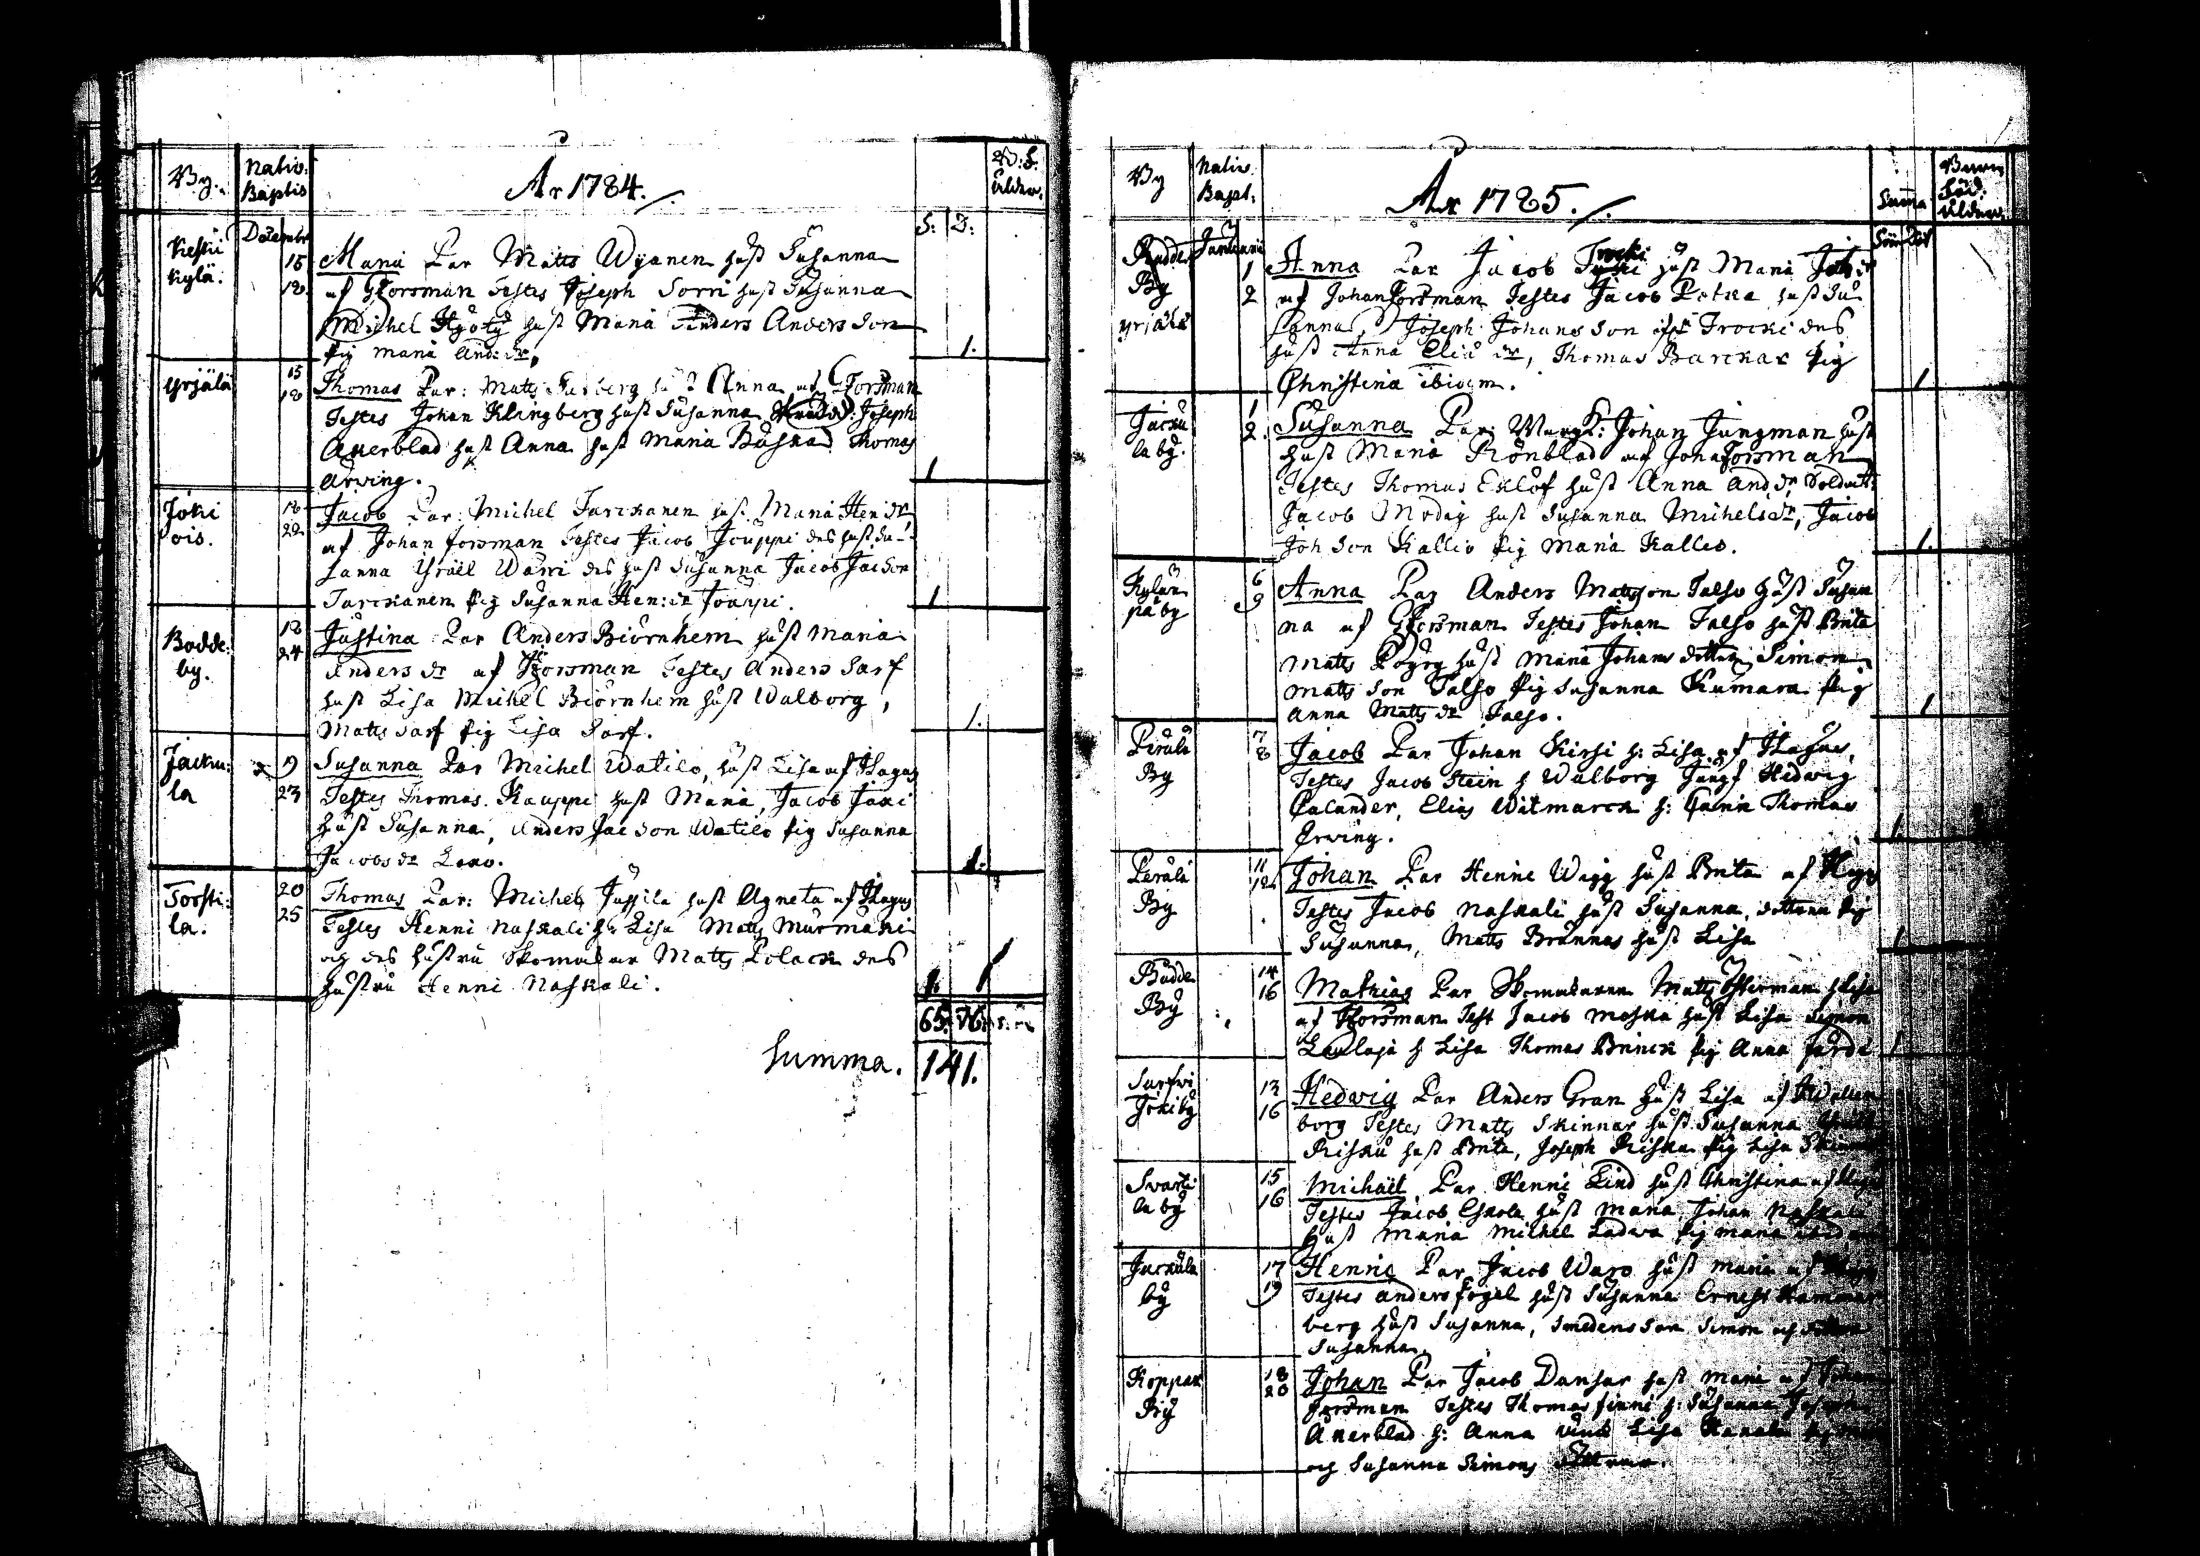 By.
Nativ:
Baptis
År 1784.
B: S.
ålder.
Decembr
S: D:
Keski
kylä.
15
18
Maria Par Matts Wyanen hust Susanna
af GForsman Testes Joseph Sorri hust Susanna
Michel Hyöty hust Maria Anders Andersson
pig Maria And: dr.
1.
Yrjälä
15
18
Thomas Par: Matts hust Anna af GForsman
Testes Johan Klingberg hust Susanna Joseph
Åkerblad hust Anna hust Maria Buskad Thomas
Arving.
1
Joki
ois.
18
22
Jacob Par: Michel Turckanen hust Maria Hen dr
af Johan Forsman Testes Jacob Jouppi des hust Su-
sanna Ysräel Warri des hust Susanna Jacob Jac Son
Turckanen pig Susanna Hen: dr Jouppi.
1
Bodde:
by.
18
24
Justina Par Anders Biörnhem hust Maria
Anders dr af Forsman Testes Anders Sarf
hust Lisa Michel Biörnhem hust Walborg,
Matts Sarf pig Lisa Sarf.
1.
Jacku:
la
19
23
Susanna Par Michel Watilo, hust Lisa af Hagus
Testes Thomas Kauppi hust Maria, Jacob Jaki
hust Susanna, Anders Jac Son Watilo pig Susanna
Jacobs dr
1.
Torsti:
la.
20
25
Thomas Par: Michel Jussila hust Agneta af Hagus
Testes Henni Naskali h: Lisa Matts Murmaki
och des hustru Skomakar Matts Polack des
hustru Henni Naskali.
1
65. 76.
Summa. 141.
By
Nativ.
Bapt:
År 1785.
Summa
Barn
föd.
ålder
Januarii
Sön Dot
Budde
By
1
2
Anna Par Jacob Trocki hust Maria Joh: dr
af Johan Forsman Testes Jacob Petka hust Su
sanna, Joseph Johans Son Trocki des
hust Anna Elia dr, Thomas Barckar pig
Christina ibidem.
1
Jacku
la by.
1
2.
Susanna Par: Johan Jungman hust
hust Maria Rönblad af Joha Forsman
Testes Thomas Eklöf hust Anna And dr Soldat:
Jacob Modig hust Susanna Michels dr, Jacob
Joh Son Kallio pig Maria Kallio.
1.
Kylän
pä by
6
9
Anna Par Anders Mattsson Talso hust Susan
na af GForsman Testes Johan Talso hust Brita
Matts hust Maria Johans dotter, Simon
Matts Son Talso pig Susanna Kumara pig
Anna Matts dr Talso.
1
Perälä
By
7
8
Jacob Par Johan Kirsi h: Lisa af Hagus,
Testes Jacob Stein h Walborg Jungf Hedwig
Calander, Elias Witmarck h: Thomas
Erving.
1
Perälä
By
11
12
Johan Par Henric Wegg hust Brita af
Testes Jacob Naskali hust Susanna, dottren pig
Susanna, Matts Brännas hust Lisa
1
Budde
By
14
16
Mathias Par Skomakaren Matts Österman h Lisa
af Forsman Test Jacob Moska hust Lisa Simon
Laulaja h Lisa Thomas Brinck pig Anna
1
Sarfvi
Joki by
13
16
Hedwig Par Anders Gran hust Lisa af
borg Testes Matts Skinnar hust Susanna
Risku hust Brita, Joseph Riska pig Lisa
Svarti
la by
15
16
Michäel. Par Henric Lind hust Christina af
Testes Jacob Eskola hust Maria Johan Naskali
hust Maria Michel Ladwa pig Maria
Jackula
by
17
19
Henric Par Jacob Waro hust Maria af
Testes Anders Fogel hust Susanna Ernest
berg hust Susanna, Smedens Son Simon och
Susanna.
Koppar
By
18
20
Johan Par Jacob Dansar hust Maria af Johan
Forsman Testes Thomas Finni h: Susanna Joseph
Åkerblad h: Anna Lisa
och Susanna Simons